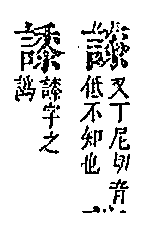 又丁尼切音
低不知也
誺字之
譌